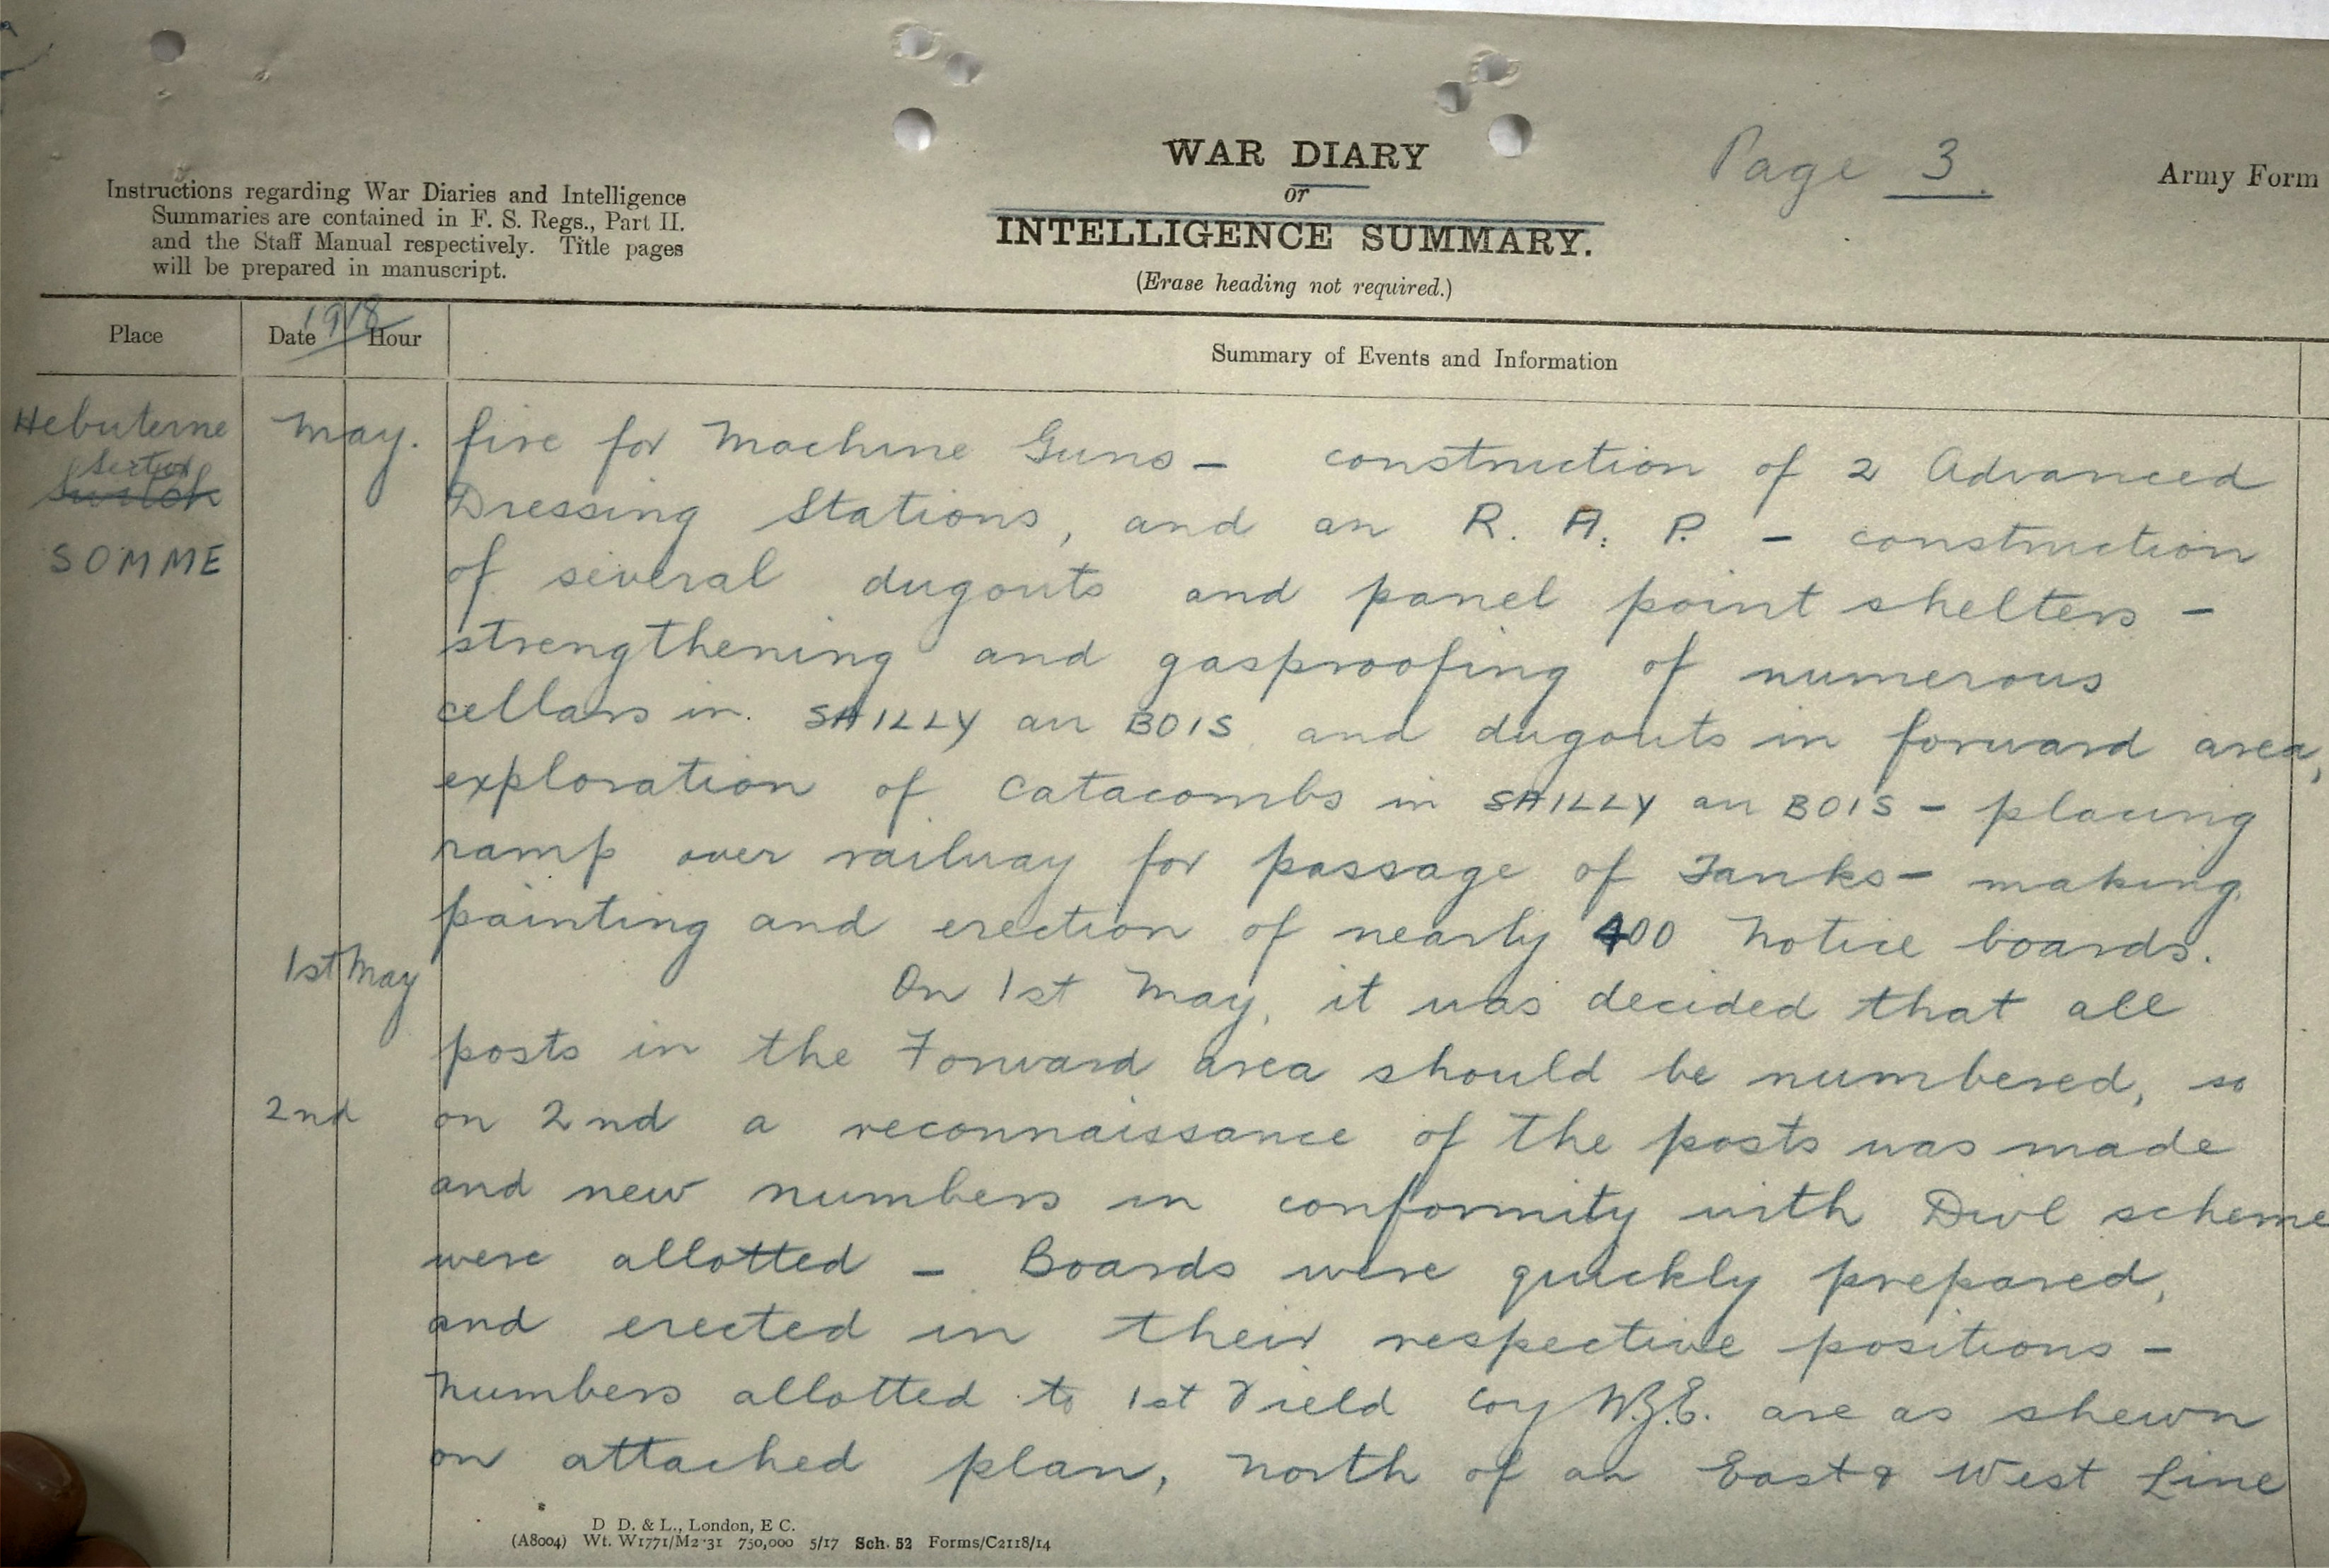 Page 3.
WAR DIARY
or
INTELLIGENCE SUMMARY.
(Erase heading not required.)
Army Form
Instructions regarding War Diaries and Intelligence
Summaries are contained in F. S. Regs., Part II.
and the Staff Manual respectively. Title pages
will be prepared in manuscript.
1918
Place
Date
Hour
Summary of Events and Information
Hebuterne
Sector
SOMME
May.
fire for Machine Guns - construction of 2 Advanced
Dressing Stations, and an R. A. P. - construction
of several dugouts and panel point shelters -
strengthening and gasproofing of numerous
cellars in. SAILLY au BOIS and dugouts in forward area,
exploration of Catacombs in SAILLY au BOIS - placing
ramp over railway for passage of Tanks - making
painting and erection of nearly 400 Notice boards.
1st May
On 1st May, it was decided that all
posts in the Forward area should be numbered, so
2nd
on 2nd a reconnaissance of the posts was made
and new numbers in conformity with Divl scheme
were allotted - Boards were quickly prepared,
and erected in their respective positions -
Numbers allotted to 1st Field Coy N.Z.E. are as shewn
on attached plan, North of an East & West Line
D D. & L., London, E C.
(A8004) Wt. W1771/M2 31 750,000 5/17 Sch. 52 Forms/C2118/14